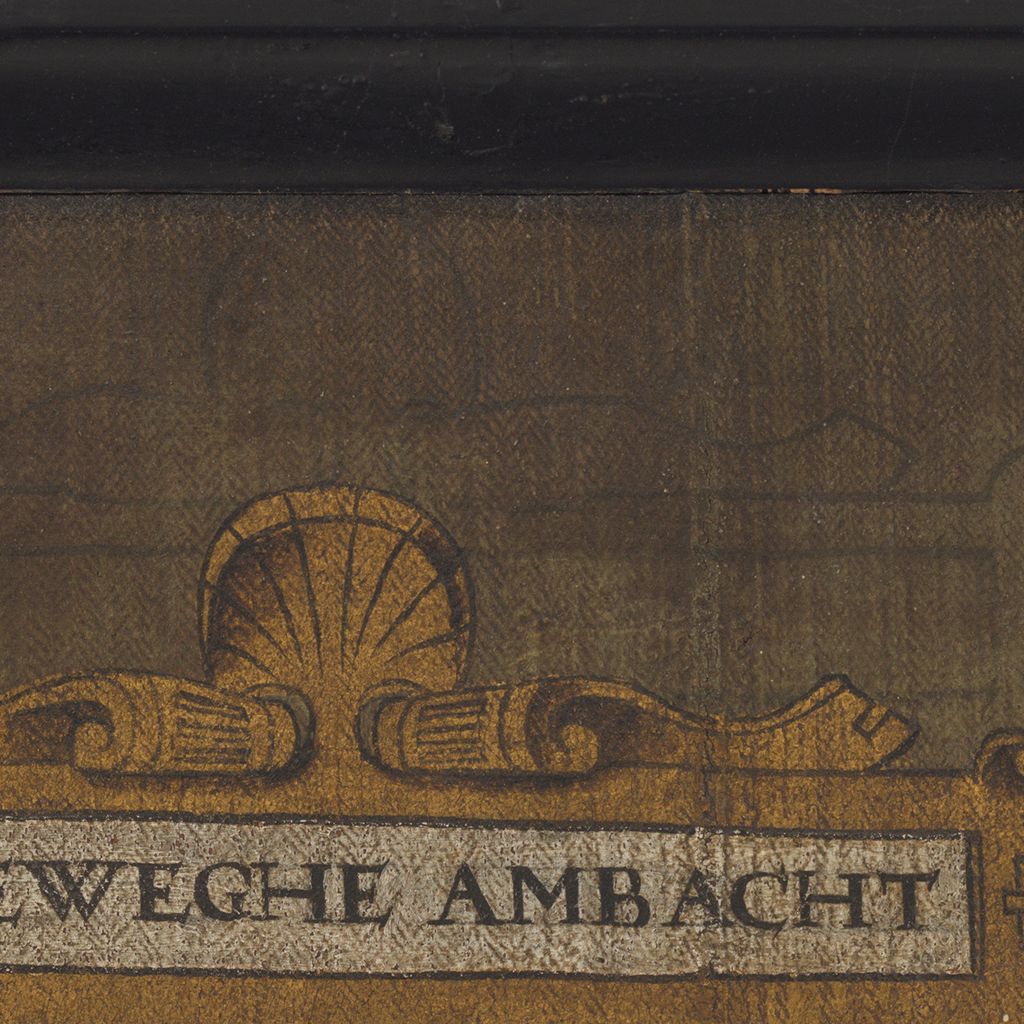 EWEGHE AMBACHT